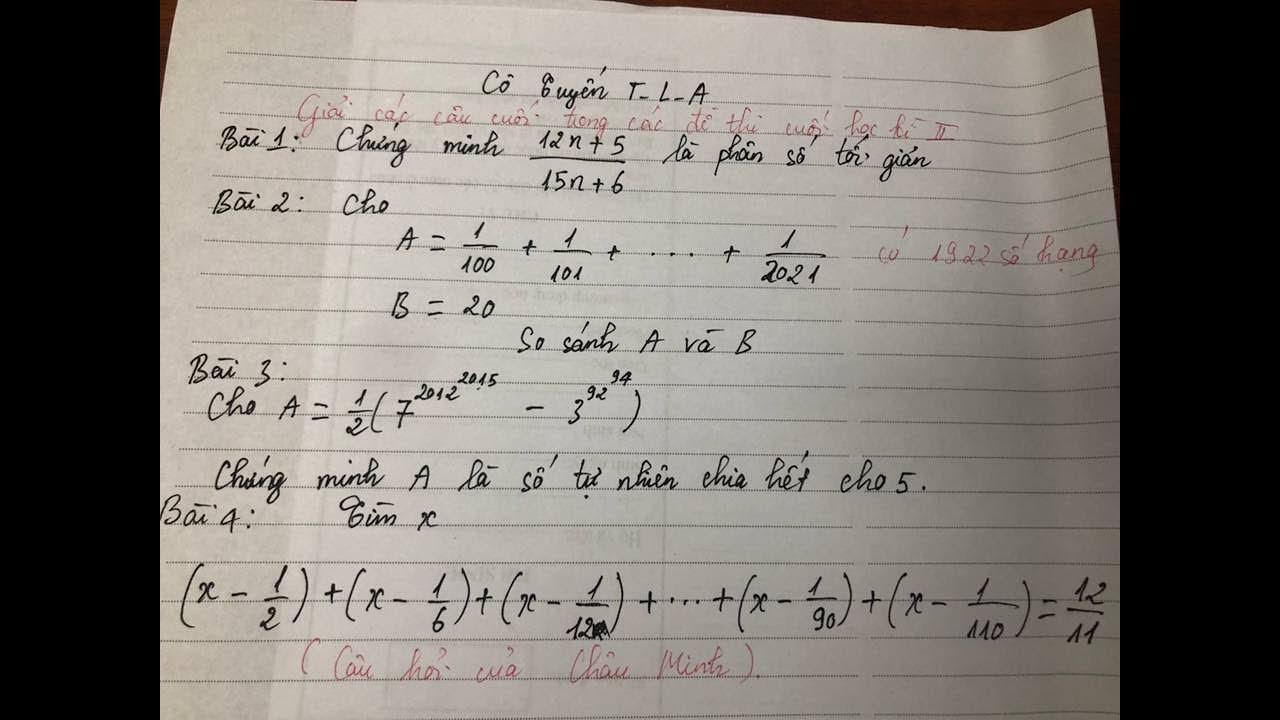 Cô Tuyến T-L-A
Giải các câu cuối trong các đề thi cuối học kì II
Bài 1: Chứng minh (12n+5)/(15n+6) là phân số tối giản
Bài 2: Cho
A = 1/100 + 1/101 + .... + 1/2021 có 1922 số hạng
B = 20
So sánh A và B
Bài 3:
Cho A = 1/2(7^2012^2015 - 3^92^94)
Chứng minh A là số tự nhiên chia hết cho 5.
Bài 4: Tìm x
(x - 1/2) + (x - 1/6) + (x - 1/12) + ... + (x - 1/90) + (x - 1/110) = 12/11
(Câu hỏi của Châu Minh).